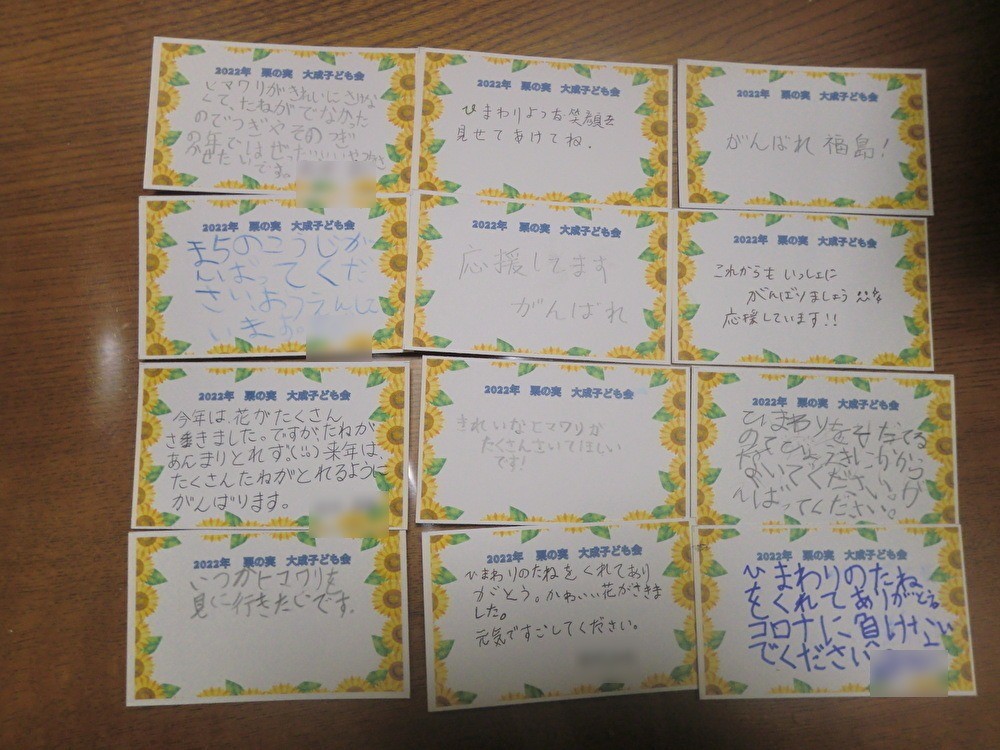 2022年 栗の実 大成子ども会
ヒマワリがきれいにさけな
くて、たねがでなかった
のでつぎやそのつぎ
の年ではぜったいいいやつをさ
かせたいです。
2022年 栗の実 大成子ども会
ひまわりような笑顔を
見せてあげてね.
2022年 栗の実 大成子ども会
がんばれ 福島!
2022年 栗の実 大成子ども会
まちのこうじが
んばってくだ
さいおうえんして
います。
2022年 栗の実 大成子ども会
応援してます
がんばれ
2022年 栗の実 大成子ども会
これからも いっしょに
がんばりましょう
応援しています!!
2022年 栗の実 大成子ども会
今年は、花がたくさん
さきました。ですが、たねが
あんまりとれず。来年は、
たくさんたねがとれるように
がんばります。
2022年 栗の実 大成子ども会
きれいなヒマワリが
たくさんさいてほしい
です!
2022年 栗の実 大成子ども会
ひまわりをそだてる
のでびょうきにかから
ないでください。が
んばってください。
2022年 栗の実 大成子ども会
いつかヒマワリを
見に行きたいです.
2022年 栗の実 大成子ども会
ひまわりのたねをくれてあり
がとう。かわいい花がさきま
した。
元気ですごしてください。
2022年 栗の実 大成子ども会
ひまわりのたね
をくれてありがとう。
コロナに負けない
でください